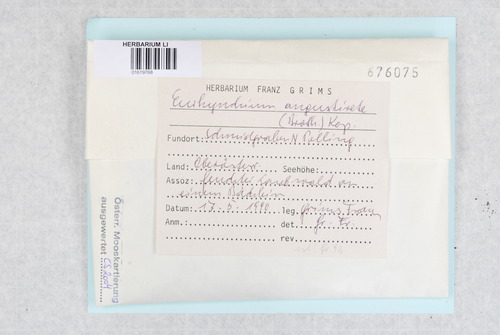 HERBARIUM LI
676075
HERBARIUM FRANZ GRIMS
Eurhynchium angustirete
(Broth.) Kop.
Fundort: Schmidgraben N Polling
Land: Oberösterr. Seehöhe:
Assoz: feuchter Laubwald an
einem Bächlein
Datum: 17.5.1980 leg. Grims Franz
Anm.: det gr. Fr
rev.
Österr. Mooskartierung
ausgewertet CS 2004